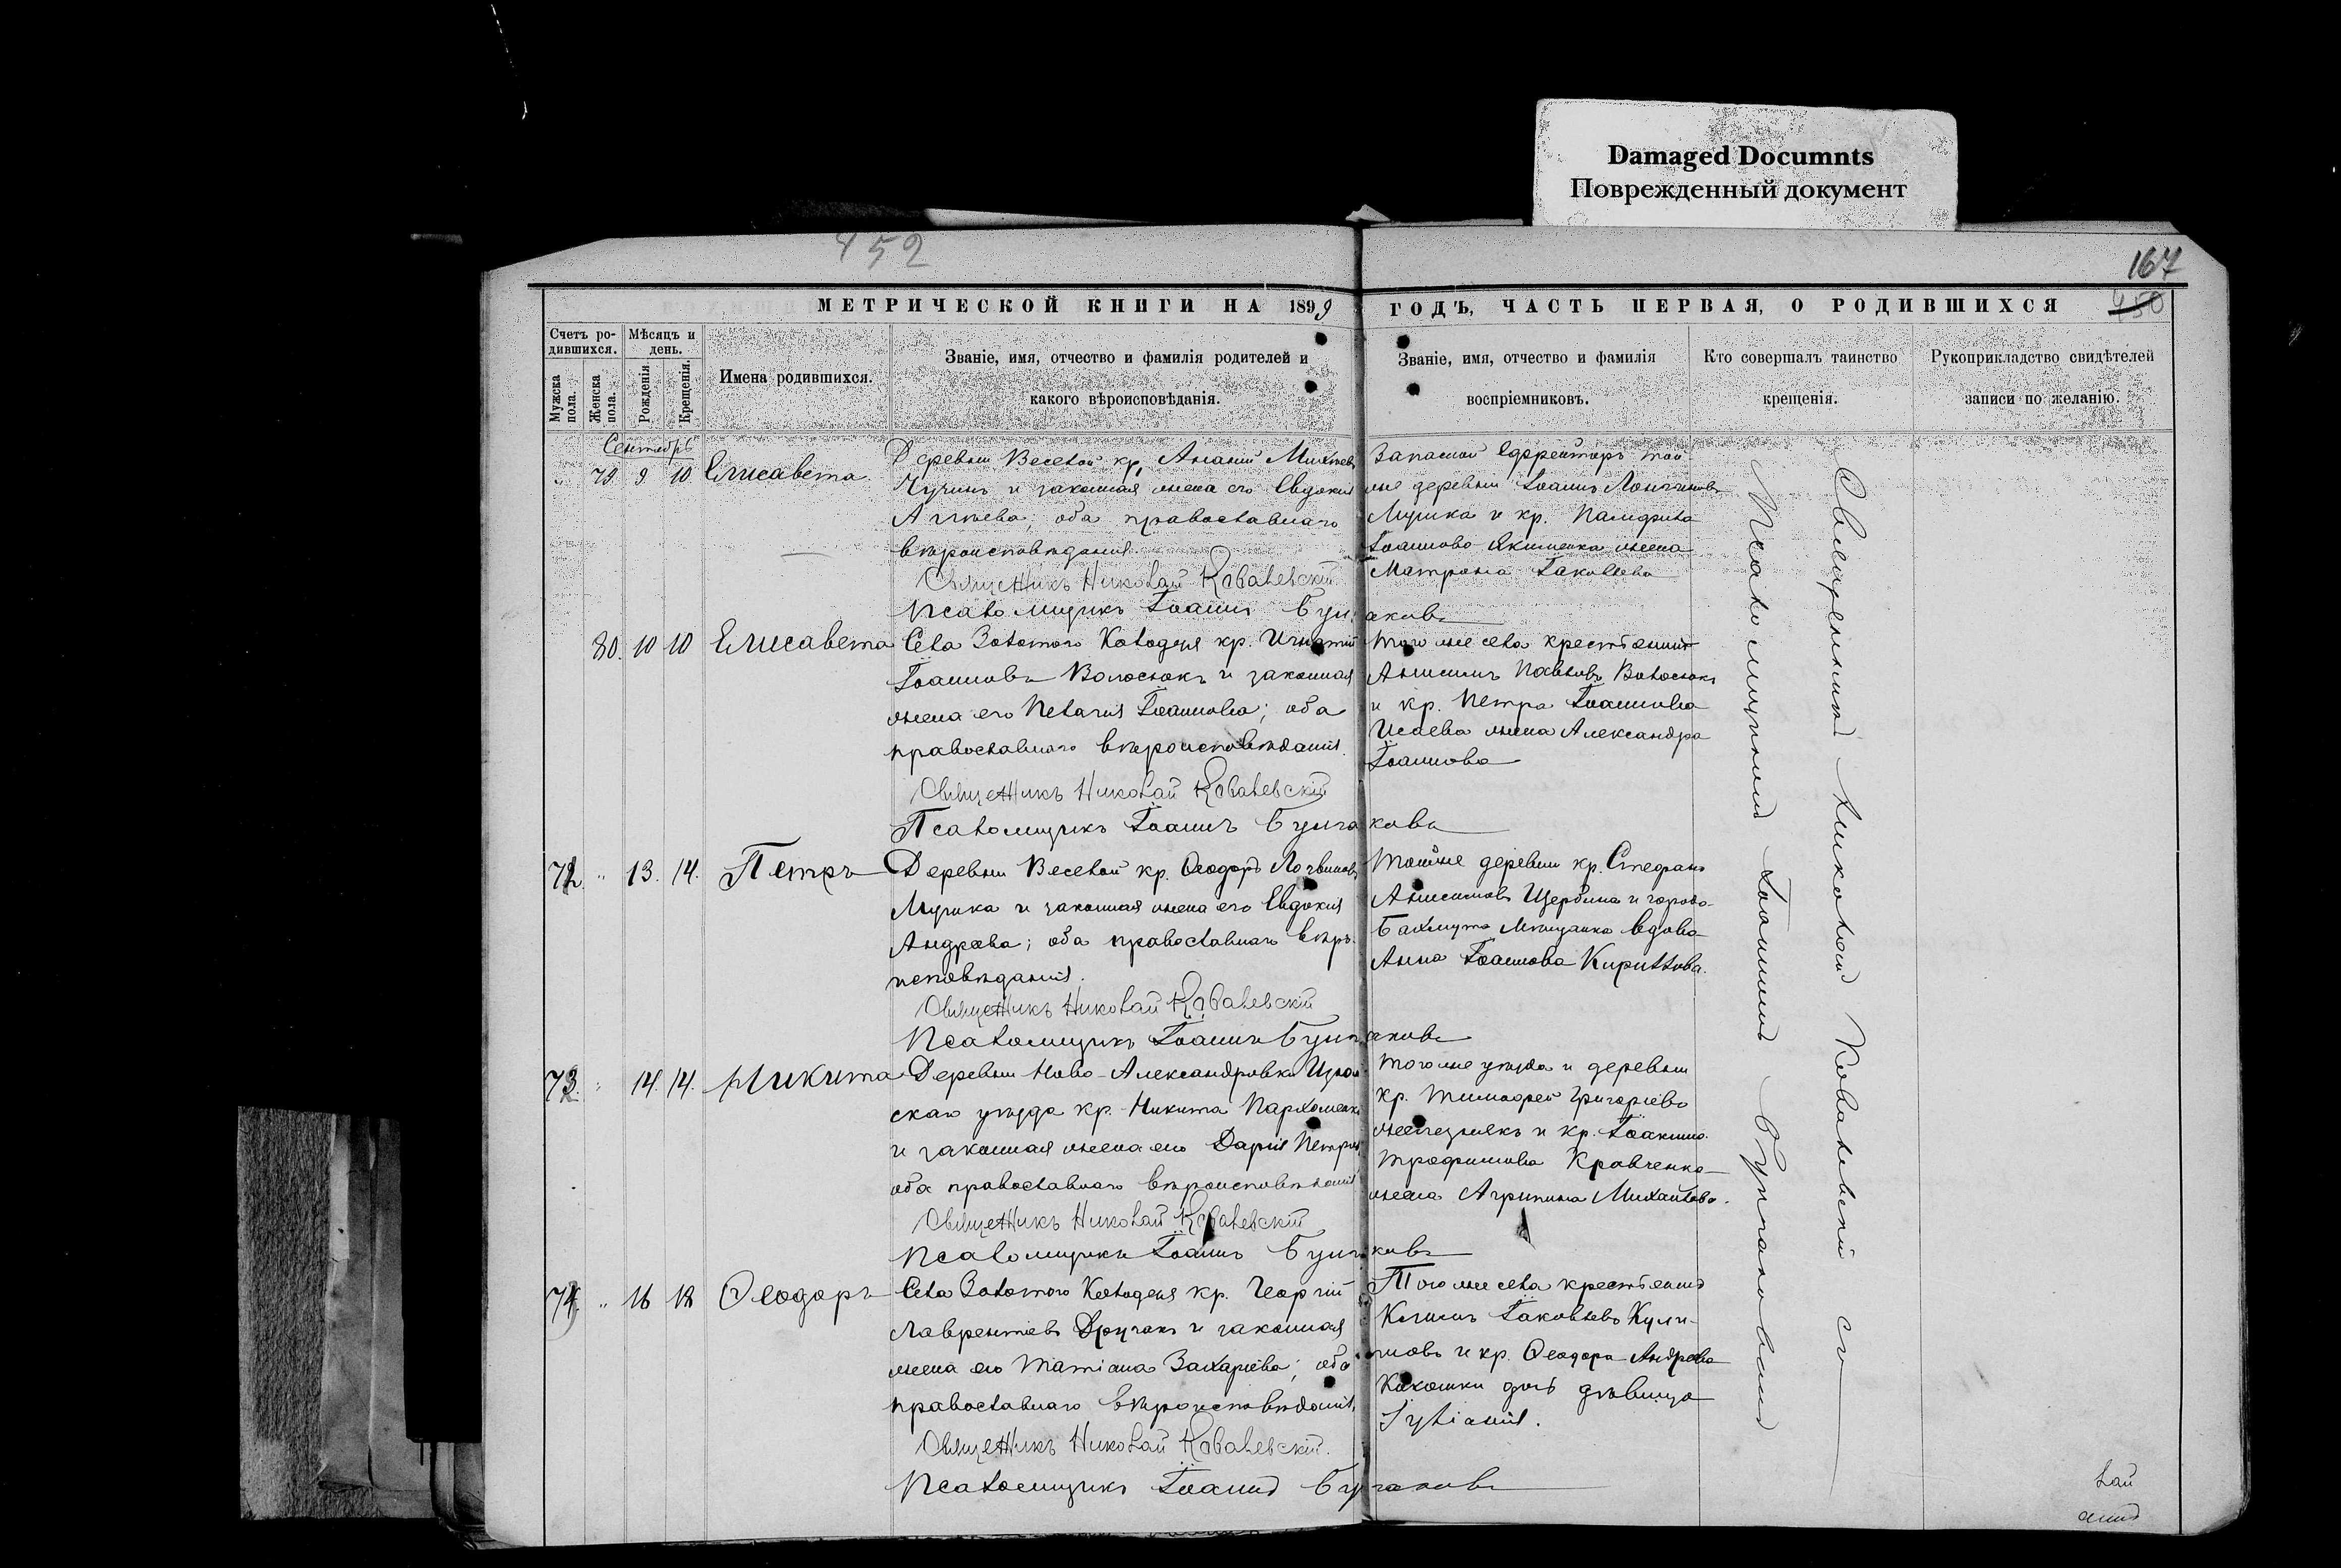 Damaged Documnts
Поврежденный документ
452
167
450
МЕТРИЧЕСКОЙ КНИГИ НА 1899 ГОДЪ, ЧАСТЬ ПЕРВАЯ, О РОДИВШИХСЯ
Счетъ ро-
дившихся.
Мужска
пола.
Женска
пола.
Мѣсяцъ и
день.
Рожденія.
Крещенія.
Имена родившихся.
Званіе, имя, отчество и фамилія родителей и
какого вѣроисповѣданія.
Званіе, имя, отчество и фамилія
воспріемниковъ.
Кто совершалъ таинство
крещенія.
Рукоприкладство свидѣтелей
записи по желанію.
Сентябрь
" 79 9 10 Елисавета
Деревни Веселой кр. Ананій
и законная жена его Евдокія
оба православнаго
вѣроисповѣданія.
Священникъ Николай Ковалевскій
Псаломщикъ Іоаннъ Булгаковъ
Запасной Ефрейторъ той
же деревни Іоаннъ Логгиновъ
Мушка и кр. Памфила
Іоаннова Якименка жена
Матрона Іаковлева
80. 10 10 Елисавета
Села Золотого Колодезя кр. Игнатій
Іоанновъ Волосюкъ и законная
жена его Пелагія Іоаннова; оба
православнаго вѣроисповѣданія.
Священникъ Николай Ковалевскій
Псаломщикъ Іоаннъ Булгаковъ
Того же села крестьянинъ
Анисимъ Павловъ Волосюкъ
и кр. Петра Іоаннова
Исаева жена Александра
Іоаннова
72. " 13. 14. Петръ
Деревни Веселой кр. Ѳеодоръ Логвиновъ
Мушка и законная жена его Евдокія
Андреева; оба православнаго вѣро-
исповѣданія.
Священникъ Николай Ковалевскій
Псаломщикъ Іоаннъ Булгаковъ
Тойже деревни кр. Стефанъ
Анисимовъ Щербина и города
Бахмута Мѣщанка вдова
Анна Іоаннова Кириллова.
73. " 14. 14. Никита
Деревни Ново-Александровки Изюм-
скаго уѣзда кр. Никита Пархоменко
и законная жена его Дарія Петрова
оба православнаго вѣроисповѣданія
Священникъ Николай Ковалевскій
Псаломщикъ Іоаннъ Булгаковъ
Того же уѣзда и деревни
кр. Тимофей Григоріевъ
и кр. Іоакима
Трофимова Кравченко
жена Агрипина Михайлова.
74. " 16 18 Ѳеодоръ
Села Золотого Колодезя кр. Георгій
Лаврентіевъ Другакъ и законная
жена его Татіана Захаріева; оба
православнаго вѣроисповѣданія.
Священникъ Николай Ковалевскій.
Псаломщикъ Іоаннъ Булгаковъ
Того же села крестьянинъ
Климъ Іаковлевъ
и кр. Ѳеодора Андреева
Кокошки дочь дѣвица
Іуліанія.
Священникъ Николай Ковалевскій съ
Псаломщикомъ Іоанномъ Булгаковымъ
лай
аннъ